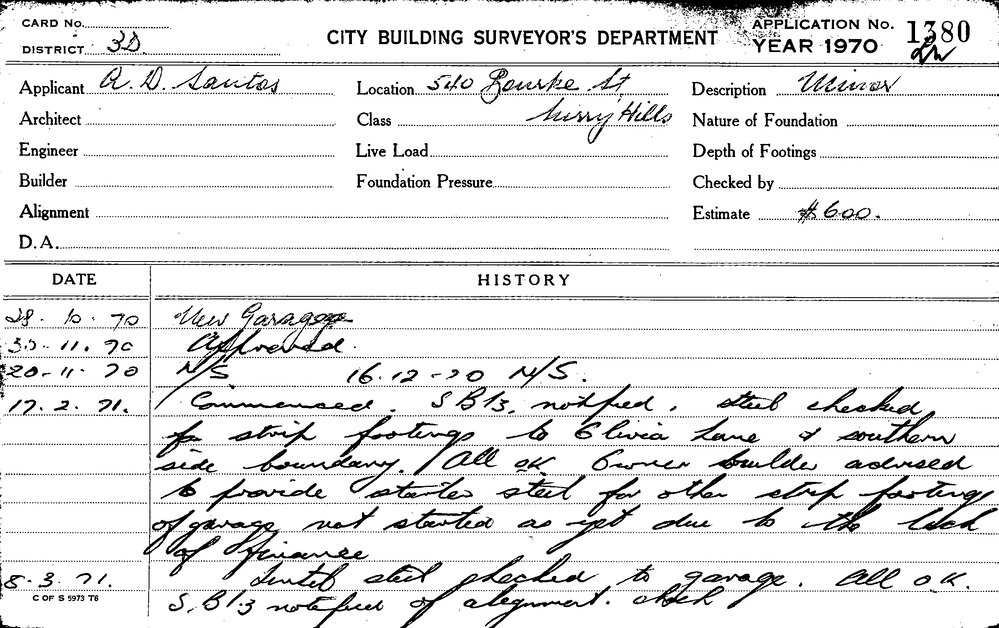 CARD No.
DISTRICT 3D.
CITY BUILDING SURVEYOR'S DEPARTMENT
APPLICATION No. 1380
YEAR 1970
Applicant A. D. Santos
Location 540 Bourke St
Description Minor
Architect
Class Surry Hills
Nature of Foundation
Engineer
Live Load
Depth of Footings
Builder
Foundation Pressure
Checked by
Alignment
Estimate $600.
D.A.
DATE HISTORY
28. 10. 70 New Garage
11. 70 Approved.
20-11. 70 N/S. 16.12-70 N/S.
17. 2. 71. Commenced. S.B13. notified. steel checked
for strip footings to Olivia Lane & southern
side boundary. All OK Owner builder advised
to provide starter steel for other strip footings
of garage not started as yet due to the lack
of finance
8. 3. 71. Lintel steel checked to garage. All OK.
S.B13 notified of alignment. check
C OF S 5973 T6